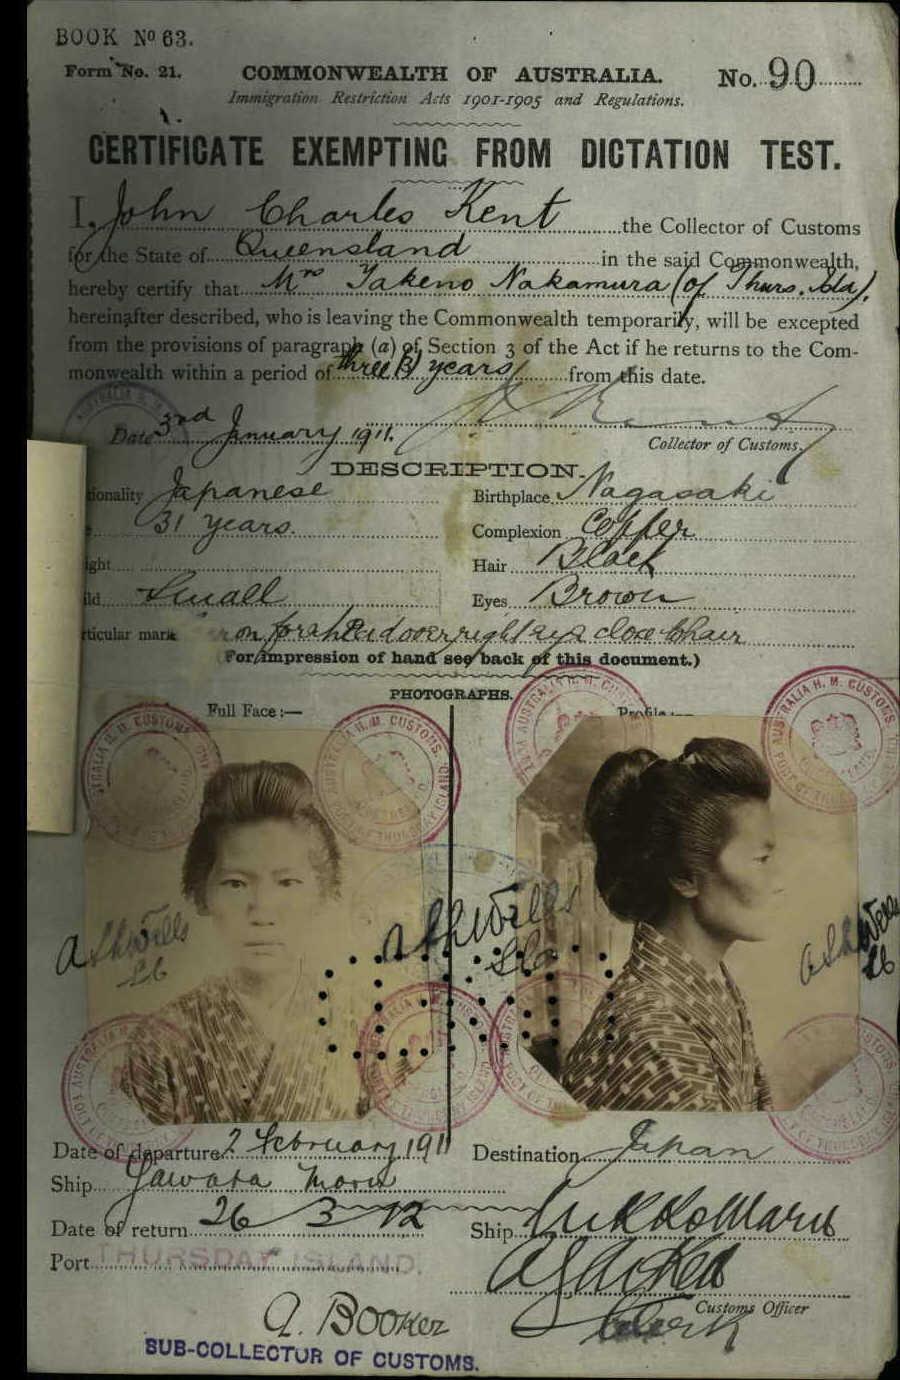 BOOK No 63.
Form No. 21.
COMMONWEALTH OF AUSTRALIA.
No. 90
Immigration Restriction Acts 1901-1905 and Regulations.
CERTIFICATE EXEMPTING FROM DICTATION TEST.
I, John Charles Kent the Collector of Customs
for the State of Queensland in the said Commonwealth,
hereby certify that Mrs Takeno Nakamura (of Thurs. Isld),
hereinafter described, who is leaving the Commonwealth temporarily, will be excepted
from the provisions of paragraph (a) of Section 3 of the Act if he returns to the Com-
monwealth within a period of three (3) years from this date.
Date 3rd January 1911.
Collector of Customs.
DESCRIPTION.
tionality Japanese
Birthplace Nagasaki
31 years.
Complexion Copper
ight
Hair Black
ild Small
Eyes Brown
rticular mark on forehead over right eye close to hair
(For impression of hand see back of this document.)
PHOTOGRAPHS.
Full Face :—
Profile :—
Date of departure 2 February 1911
Destination Japan
Ship Yawata Maru
Date of return 26 3 12
Ship Nikko Maru
Port THURSDAY ISLAND.
Customs Officer
Clerk
A. Booker
SUB-COLLECTOR OF CUSTOMS.